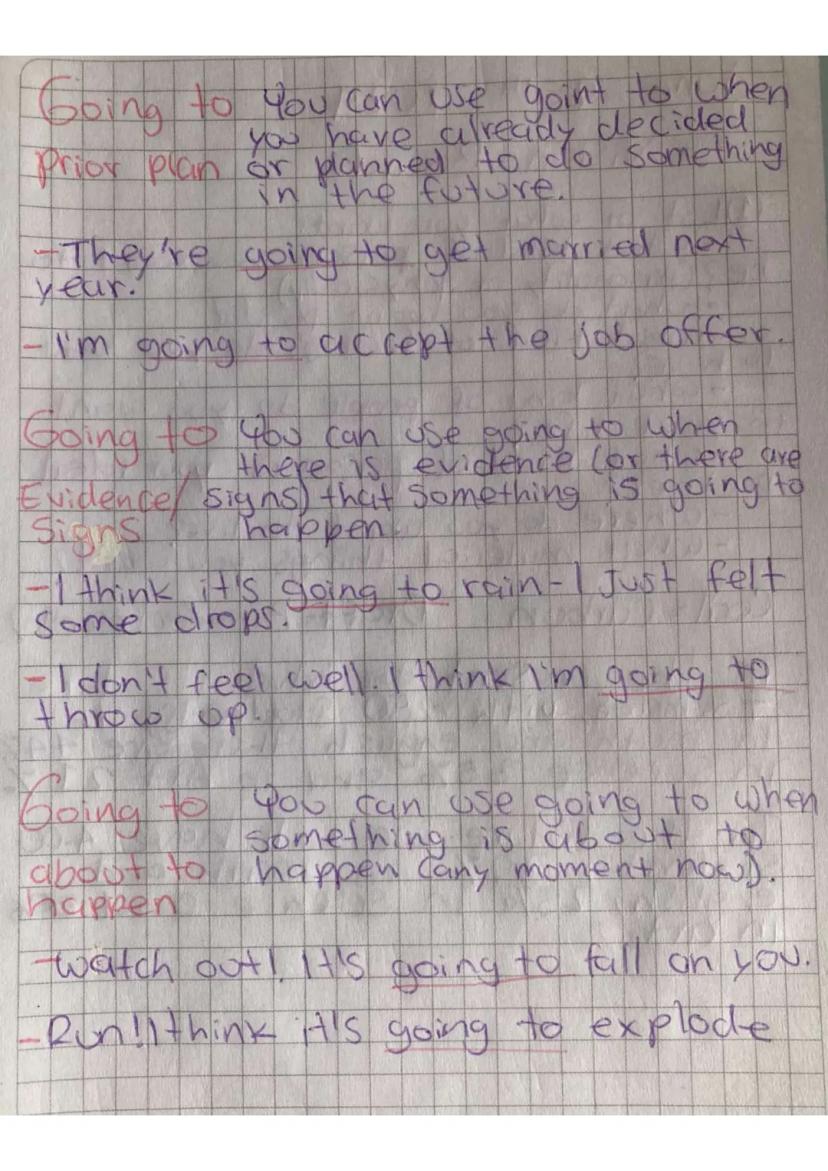 Going to You can use goint to when
you have already decided
Prior plan or planned to do something
in the future.
- They're going to get married next
year.
- I'm going to accept the job offer.
Going to You can use going to when
there is evidence (or there are
Evidence/ signs) that something is going to
Signs happen.
- I think it's going to rain - I Just felt
some drops.
- I don't feel well. I think I'm going to
throw up.
Going to You can use going to when
something is about to
about to happen (any moment now).
happen
- Watch out!. It's going to fall on you.
- Run!! I think it's going to explode